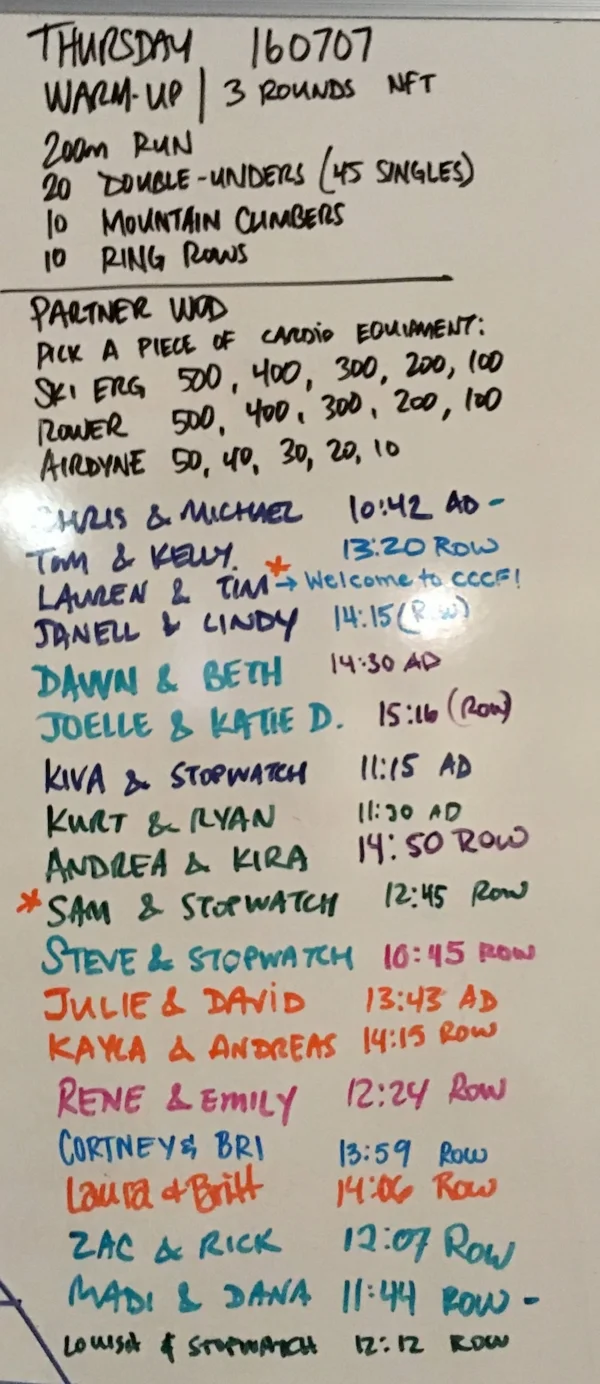 THURSDAY 160707
WARM-UP | 3 ROUNDS NFT
200m RUN
20 DOUBLE-UNDERS (45 SINGLES)
10 MOUNTAIN CLIMBERS
10 RING ROWS
PARTNER WOD
PICK A PIECE OF CARDIO EQUIPMENT:
SKI ERG 500, 400, 300, 200, 100
ROWER 500, 400, 300, 200, 100
AIRDYNE 50, 40, 30, 20, 10
CHRIS & MICHAEL 10:42 AD -
TOM & KELLY 13:20 ROW
LAUREN & TIM * → Welcome to CCCF!
JANELL & LINDY 14:15 (ROW)
DAWN & BETH 14:30 AD
JOELLE & KATIE D. 15:16 (ROW)
KIVA & STOPWATCH 11:15 AD
KURT & RYAN 11:30 AD
ANDREA & KIRA 14:50 ROW
* SAM & STOPWATCH 12:45 ROW
STEVE & STOPWATCH 10:45 ROW
JULIE & DAVID 13:43 AD
KAYLA & ANDREAS 14:15 ROW
RENE & EMILY 12:24 ROW
CORTNEY & BRI 13:59 ROW
Laura & Britt 14:06 ROW
ZAC & RICK 12:07 ROW
MADI & DANA 11:44 ROW -
LOUISA & STOPWATCH 12:12 ROW